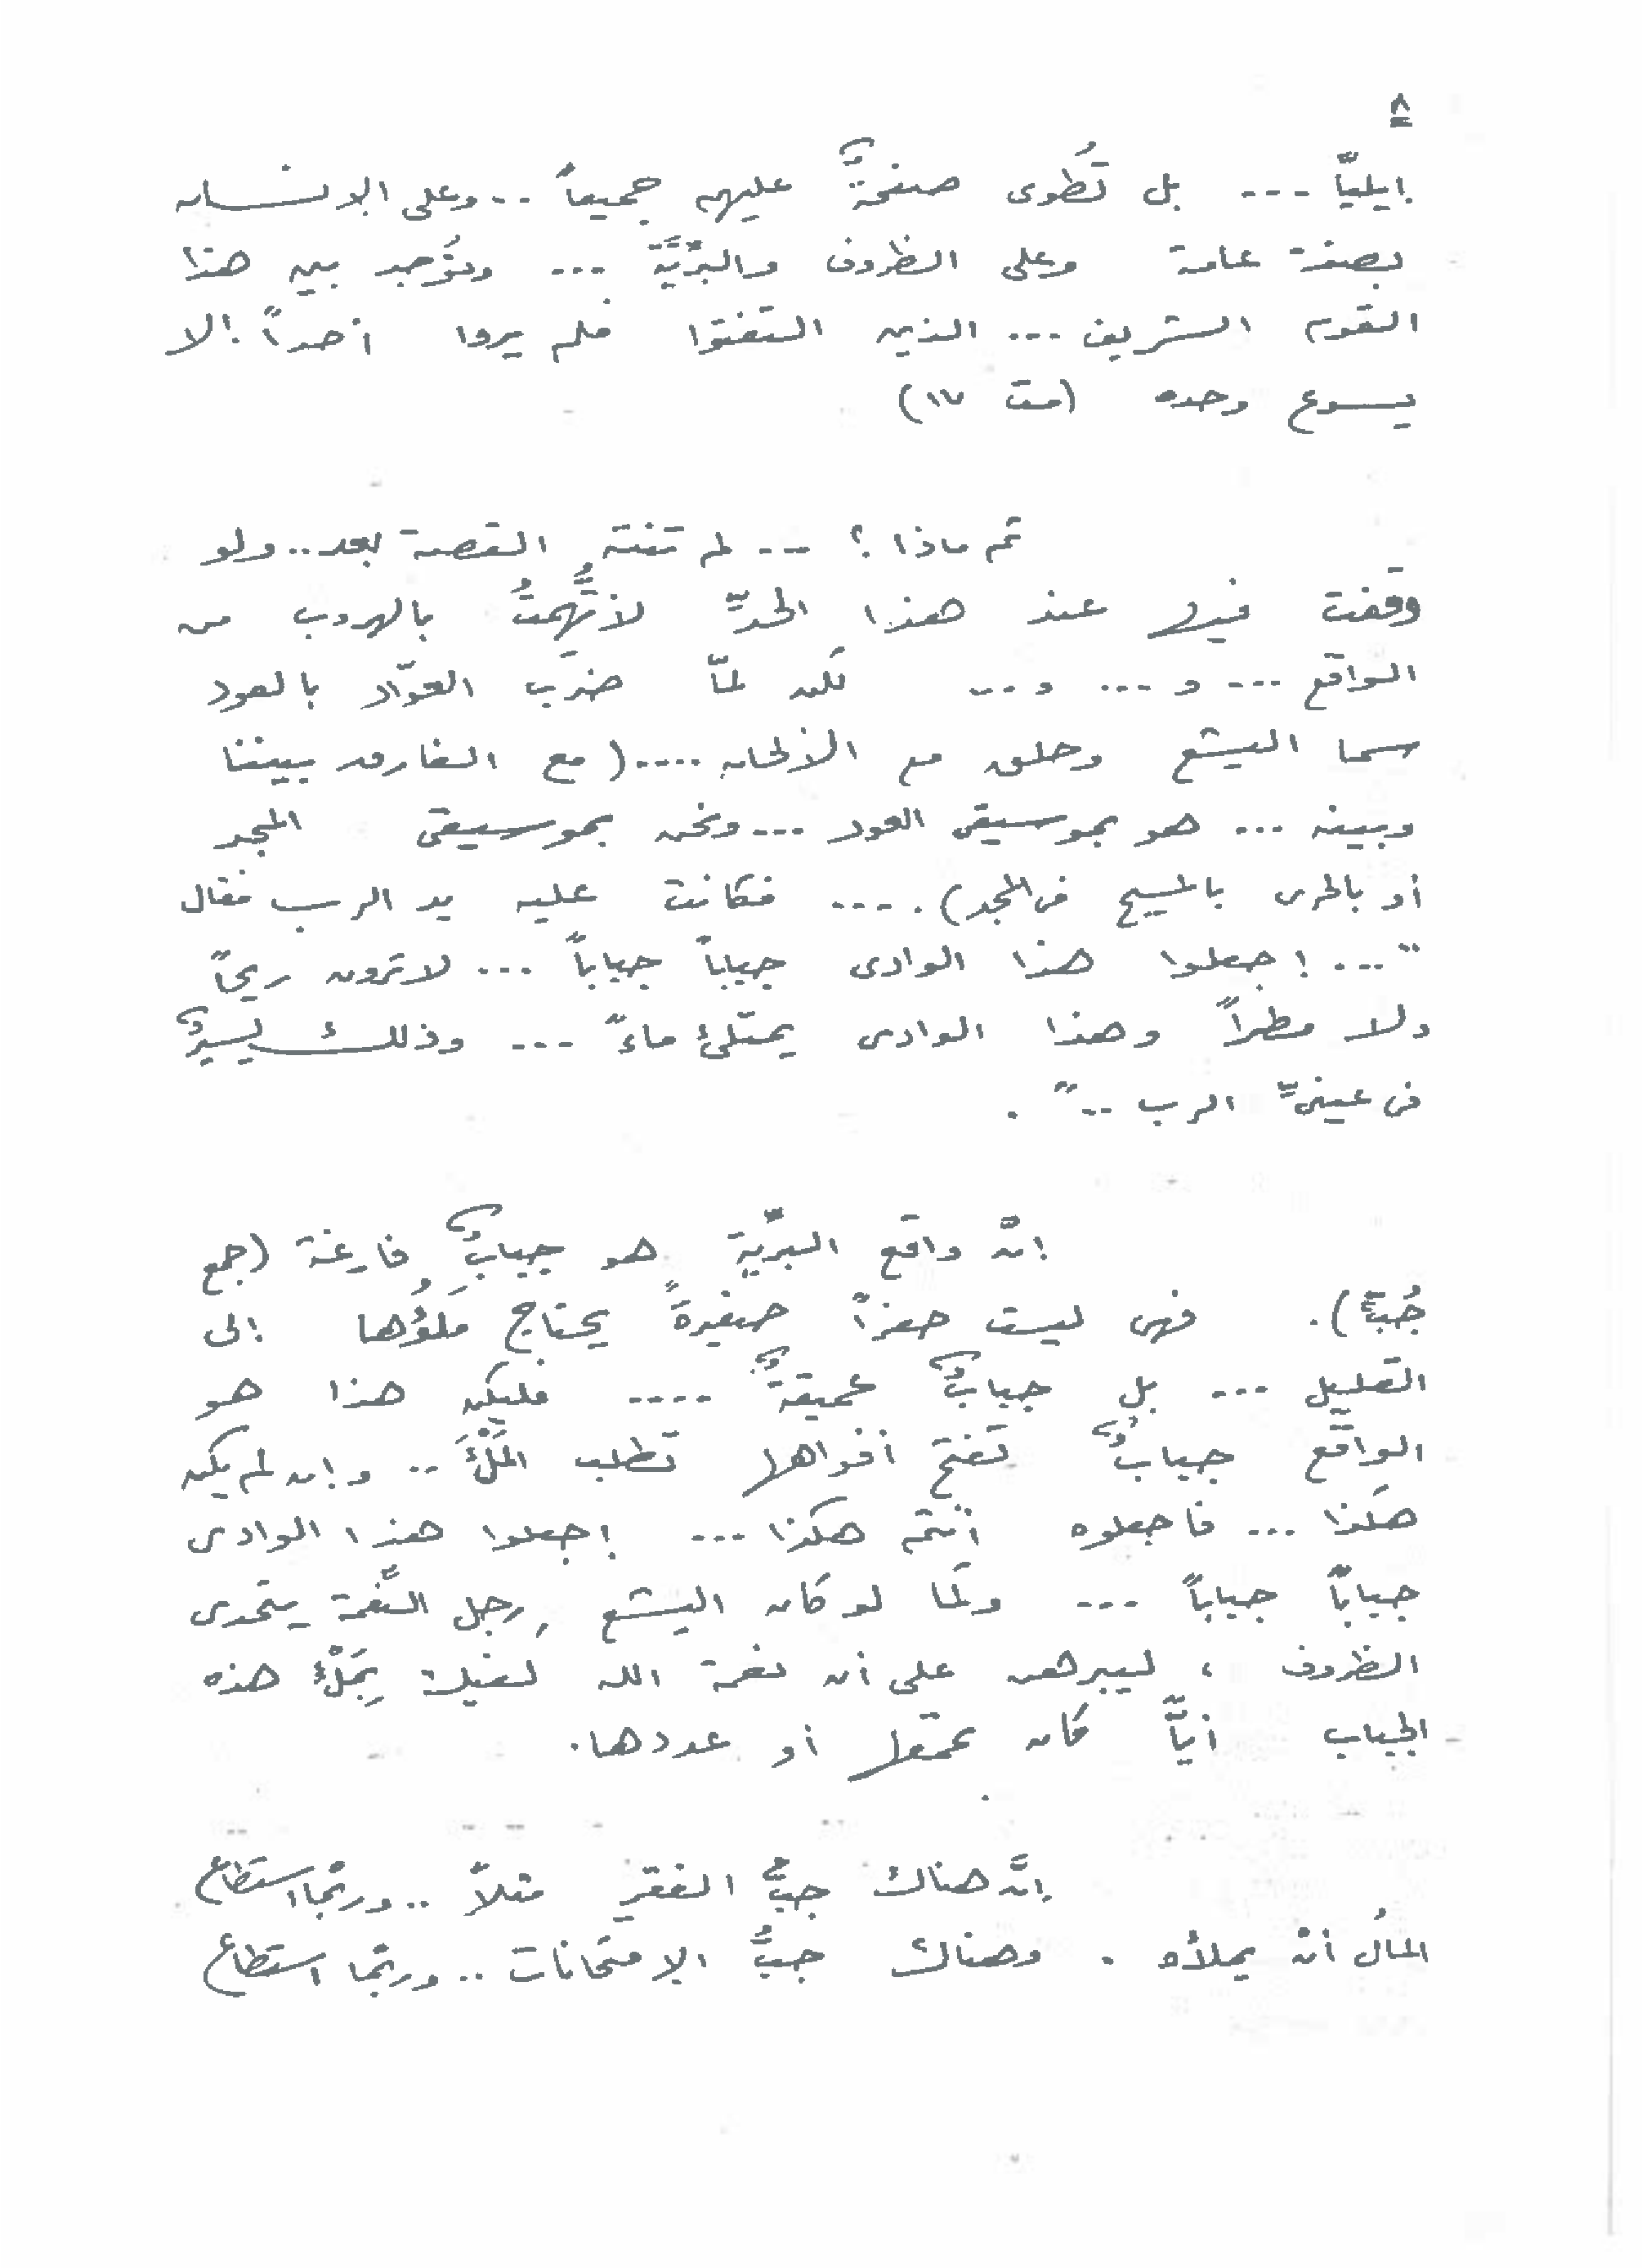 ٨
إيليَّا ... بل تُطوى صفحةٌ عليهم جميعاً .. وعلى الإنسان
بصفة عامة وعلى الظروف والبرِّيَّة ... ونؤخذ بين هذا
القوم الشريف ... الذين التفتوا فلم يروا أحداً إلا
يسوع وحده (مت ١٧)
ثم ماذا ؟ ... لم تنته القصة بعد .. ولو
وقفت فيها عند هذا الحدِّ لأتُّهِمتُ بالهروب من
الواقع ... و ... و ... لكن لمَّا ضرَب العوَّاد بالعود
سما اليشع وحلق مع الألحان .... (مع الفارق بيننا
وبينه ... هو بموسيقى العود ... ونحن بموسيقى المجد
أو بالحرى بالمسيح فى المجد) . ... فكانت عليه يد الرب فقال
" ... إجعلوا هذا الوادى جباباً جباباً ... لا ترون ريحاً
ولا مطراً وهذا الوادى يمتلئ ماءً ... وذلك يسيرٌ
فى عينىِّ الرب .. " .
إنَّ واقع البرِّية هو جبابٌ فارغة (جمع
جُبّ) . فهى ليست حفراً صغيرةً يحتاج ملؤُها إلى
القليل ... بل جبابٌ عميقةٌ .... فليكن هذا هو
الواقع جبابٌ تفتح أفواهها تطلب المَلْءَ .. وإن لم يكن
هكذا ... فاجعلوه أنتم هكذا ... إجعلوا هذا الوادى
جباباً جباباً ... ولمَّا لو كان اليشع رجل النِّعمة يتحدى
الظروف ، ليبرهن على أن نعمة الله كفيلة بِمَلْءُ هذه
الجباب أيَّاً كان عمقها أو عددها .
إنَّ هناك جبُّ الفقر مثلاً .. وربمَّا استطاع
المالُ أنْ يملأه . وهناك جبُّ الإمتحانات .. وربمَّا استطاع